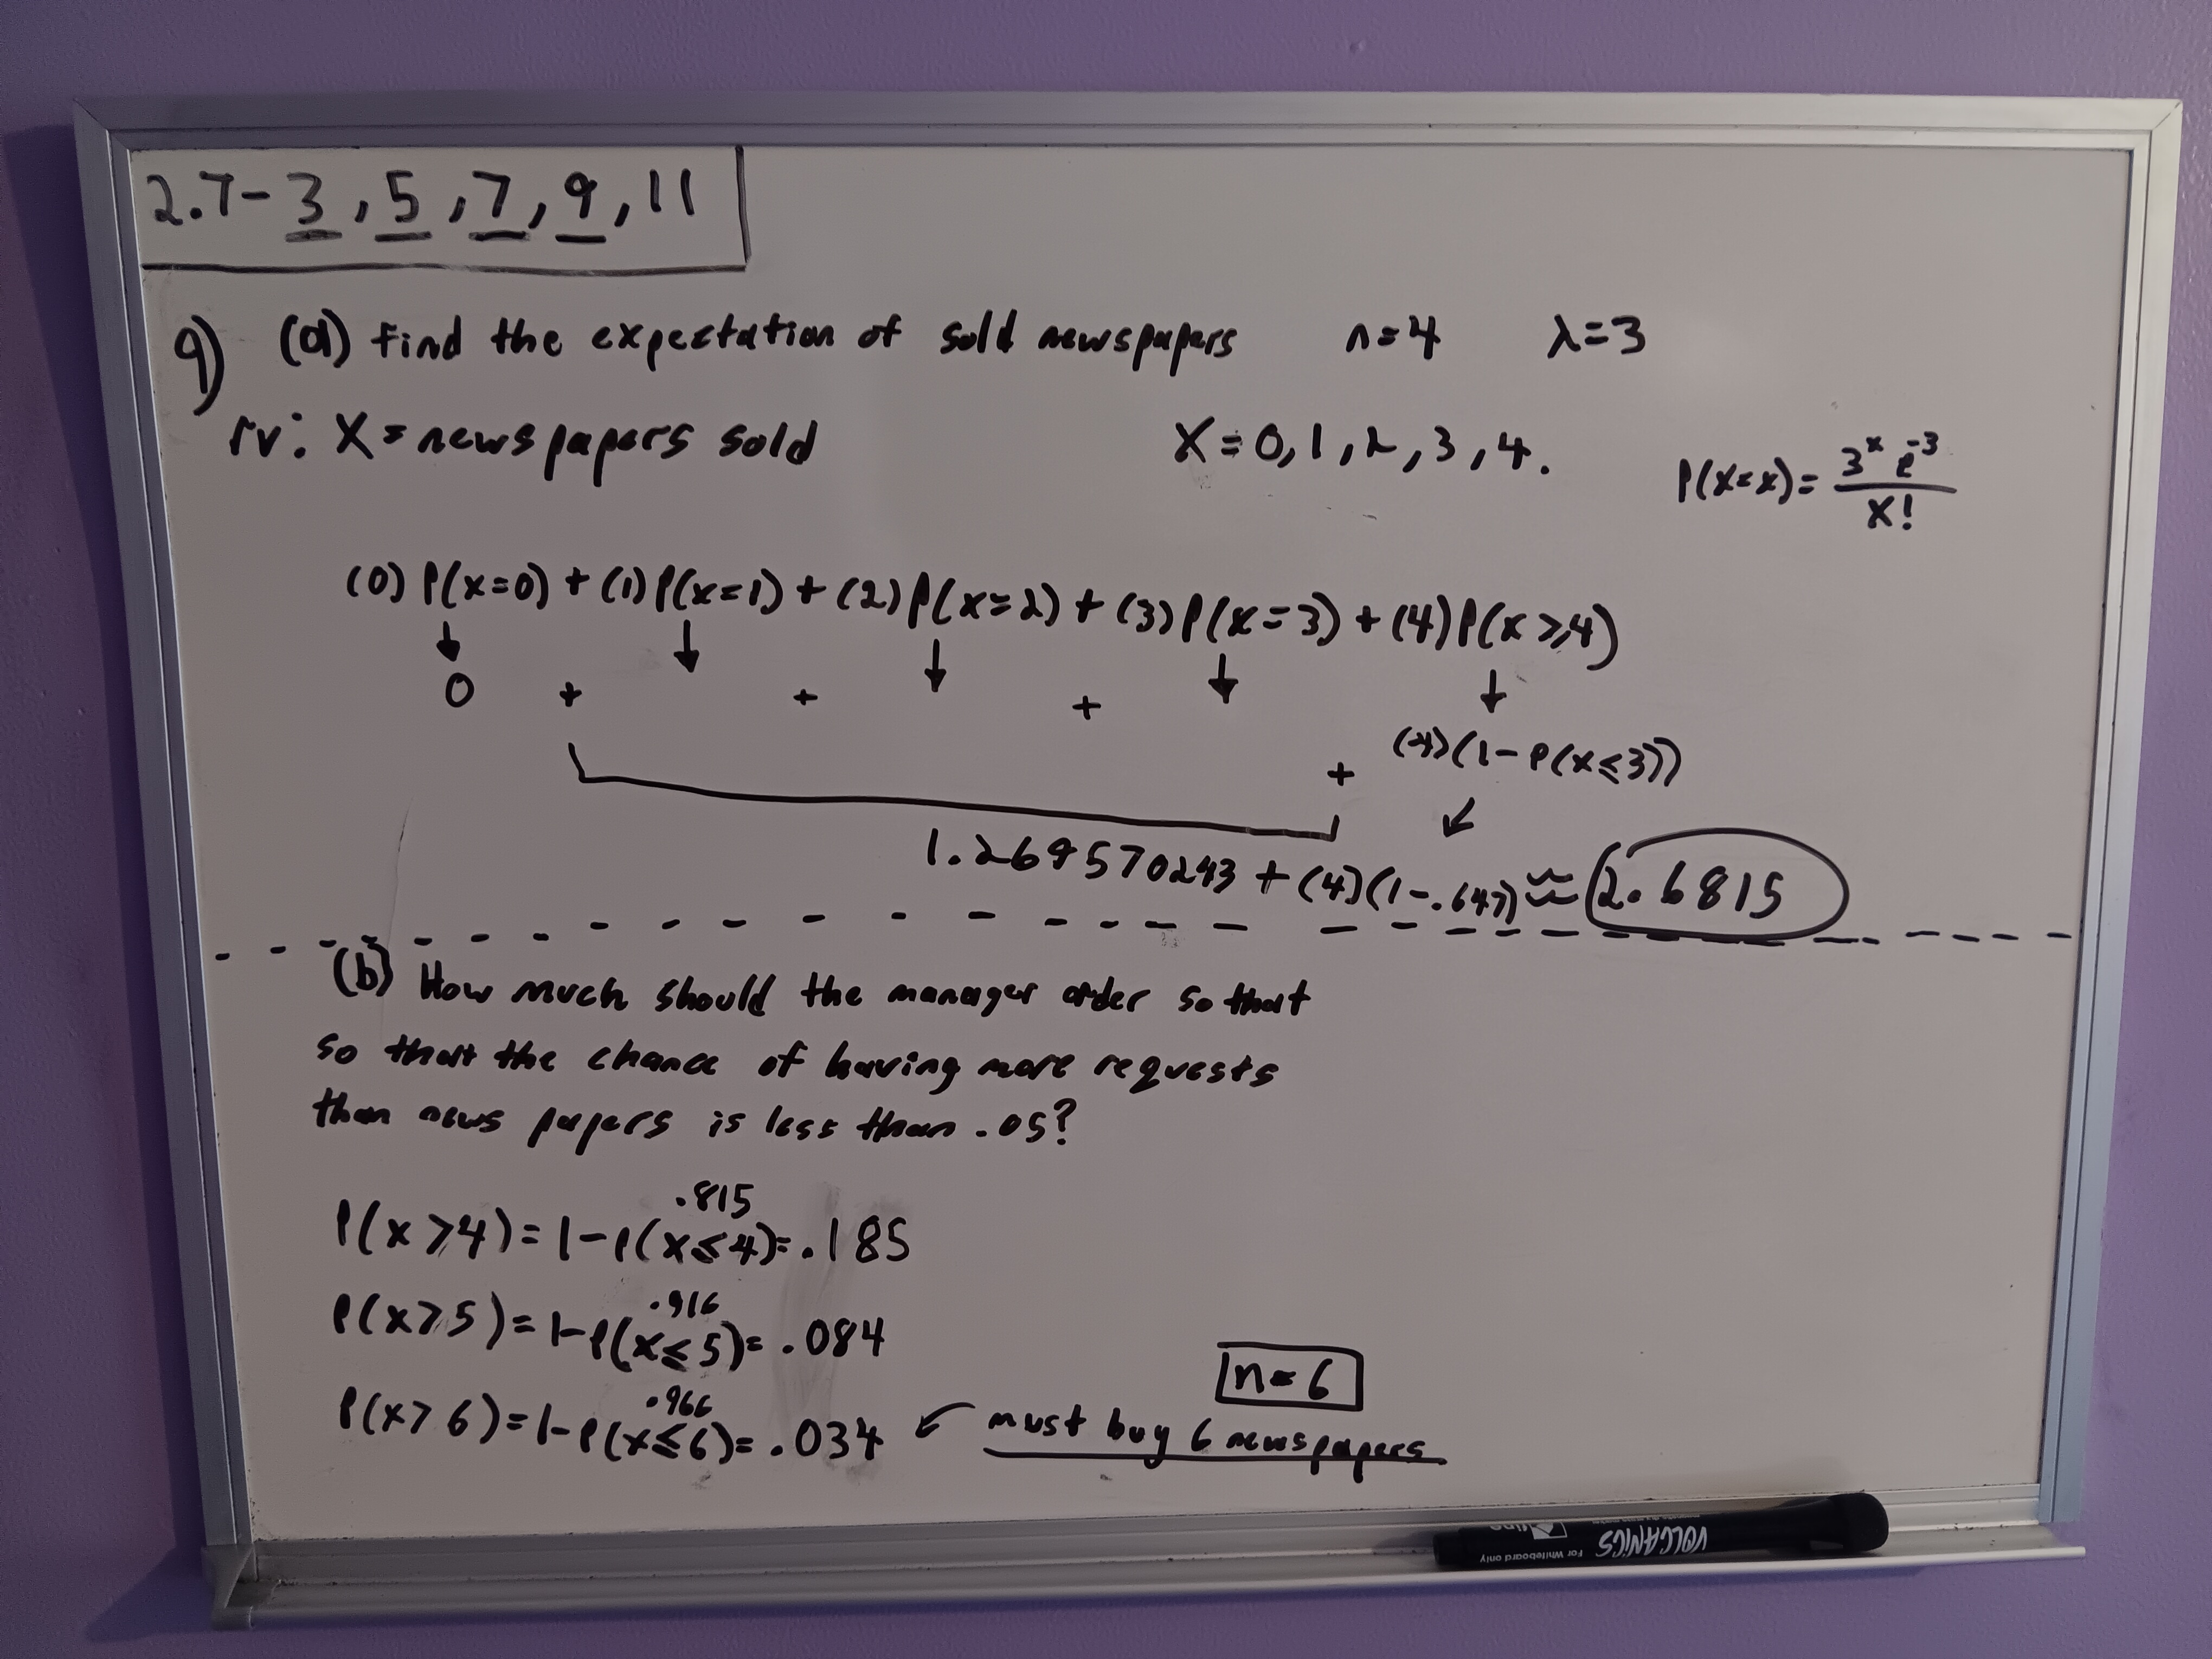 2.7-3, 5, 7, 9, 11
9) (a) find the expectation of sold newspapers n=4 λ=3
rv: X = newspapers sold X = 0, 1, 2, 3, 4. P(X=x) = 3^x e^-3 / x!
(0) P(x=0) + (1) P(x=1) + (2) P(x=2) + (3) P(x=3) + (4) P(x≥4)
↓ ↓ ↓ ↓ ↓
0 + + +
+ (4)(1-P(x≤3))
1.269570243 + (4)(1-.647) ≈ 2.6815
(b) How much should the manager order so that
so that the chance of having more requests
than news papers is less than .05?
.815
P(x>4) = 1-P(x≤4) = .185
.916
P(x>5) = 1-P(x≤5) = .084
n=6
.966
P(x>6) = 1-P(x≤6) = .034 ← must buy 6 newspapers
VOLCANICS
For Whiteboard only